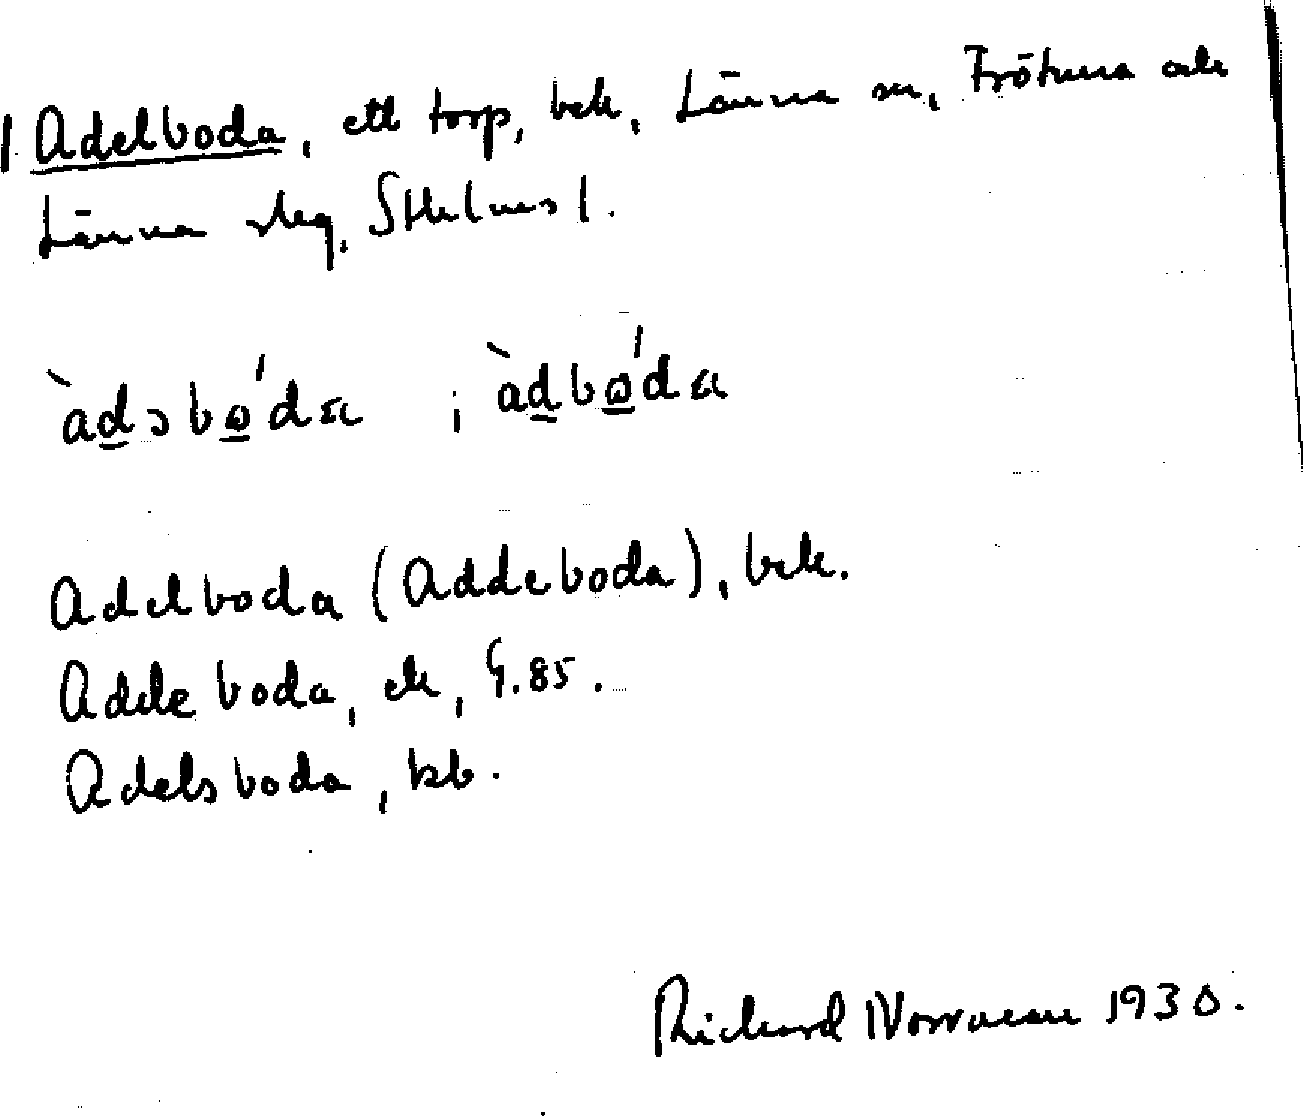 Adelboda, ett torp, bek, Länna sn, Frötuna och
Länna slg, Sthlms l.
àdsbo̱'da ; àdbo̱'da
Adelboda (Addeboda), bek.
Addeboda, ek, G.85.
Adelsboda, kb.
Richard Norrman 1930.